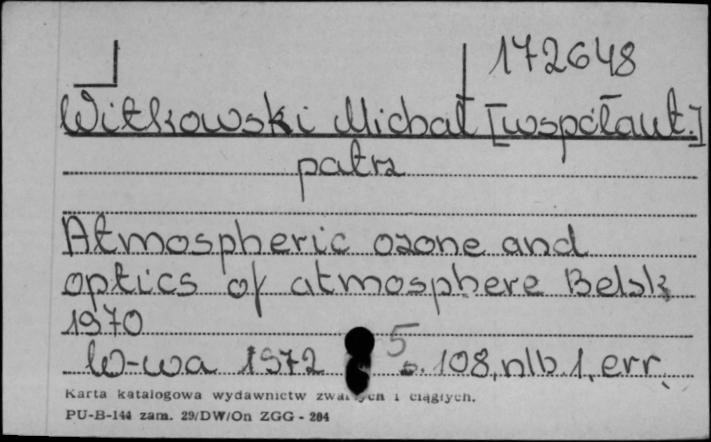 172648
Witkowski Michał [współaut.]
patrz
Atmospheric ozone and
optics of atmosphere Belsk
1970
W-wa 1972 5 s. 108, nlb. 1, err.
Karta katalogowa wydawnictw zwartych i ciągłych.
PU-B-144 zam. 29/DW/On ZGG - 204